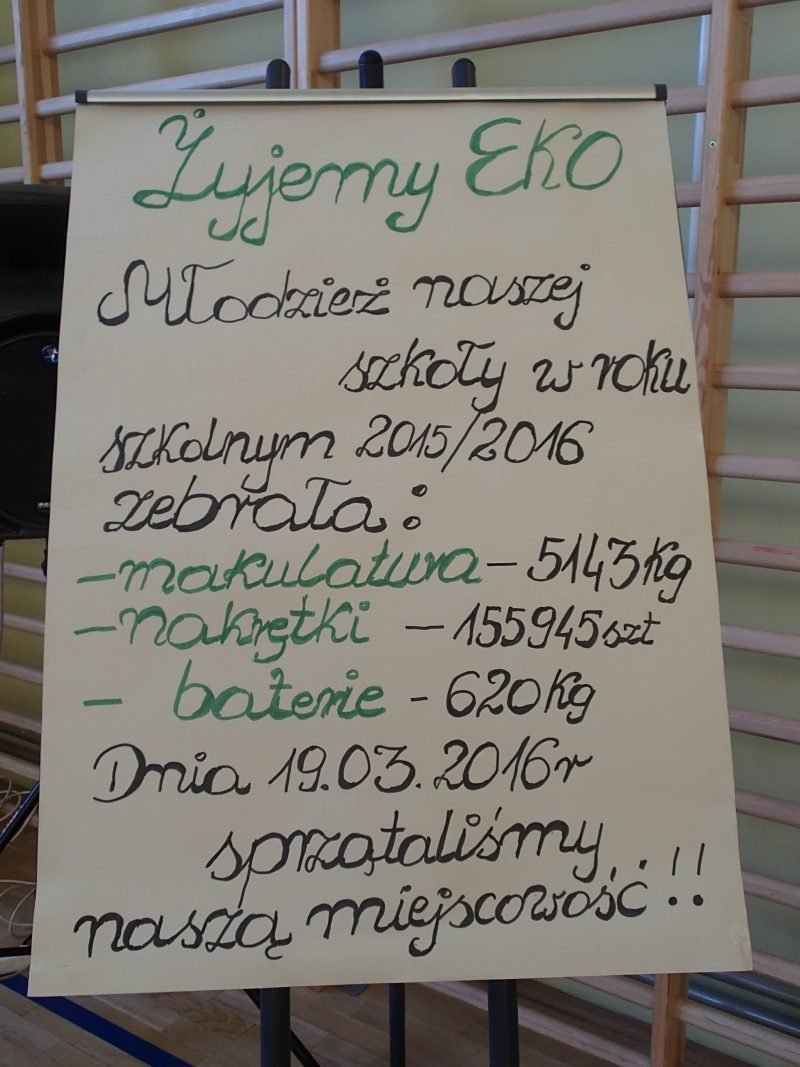 Żyjemy EKO
Młodzież naszej
szkoły w roku
szkolnym 2015/2016
zebrała:
- makulatura - 5143 kg
- nakrętki - 155945 szt
- baterie - 620 kg
Dnia 19.03.2016r
sprzątaliśmy
naszą miejscowość!!